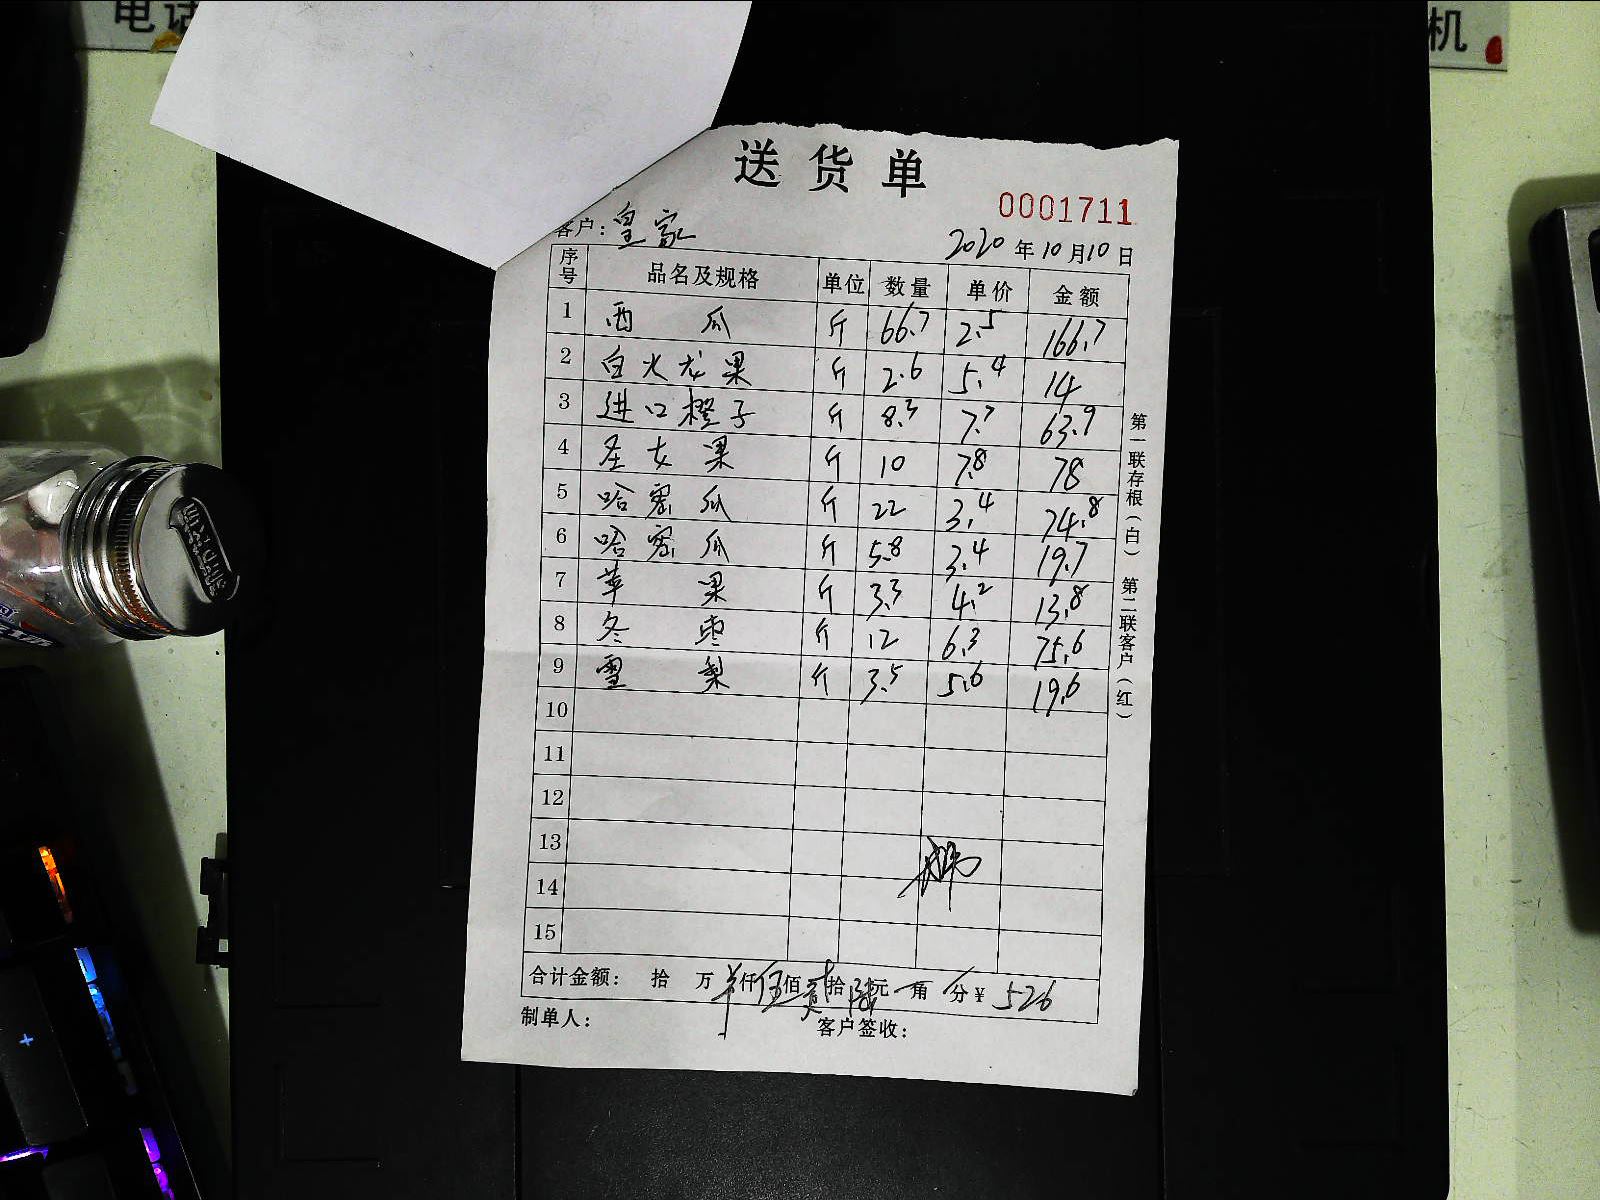 电话
机
送货单
0001711
客户：皇家
2020年10月10日
序号 品名及规格 单位 数量 单价 金额
1 西瓜 斤 66.7 2.5 166.7
2 白火龙果 斤 2.6 5.4 14
3 进口橙子 斤 8.3 7.7 63.9
4 圣女果 斤 10 7.8 78
5 哈密瓜 斤 22 3.4 74.8
6 哈密瓜 斤 5.8 3.4 19.7
7 苹果 斤 3.3 4.2 13.8
8 冬枣 斤 12 6.3 75.6
9 雪梨 斤 3.5 5.6 19.6
10
11
12
13
14
15
合计金额： 拾 万 仟伍佰贰拾陆元 角 分￥526
制单人： 客户签收：
第一联存根（白） 第二联客户（红）